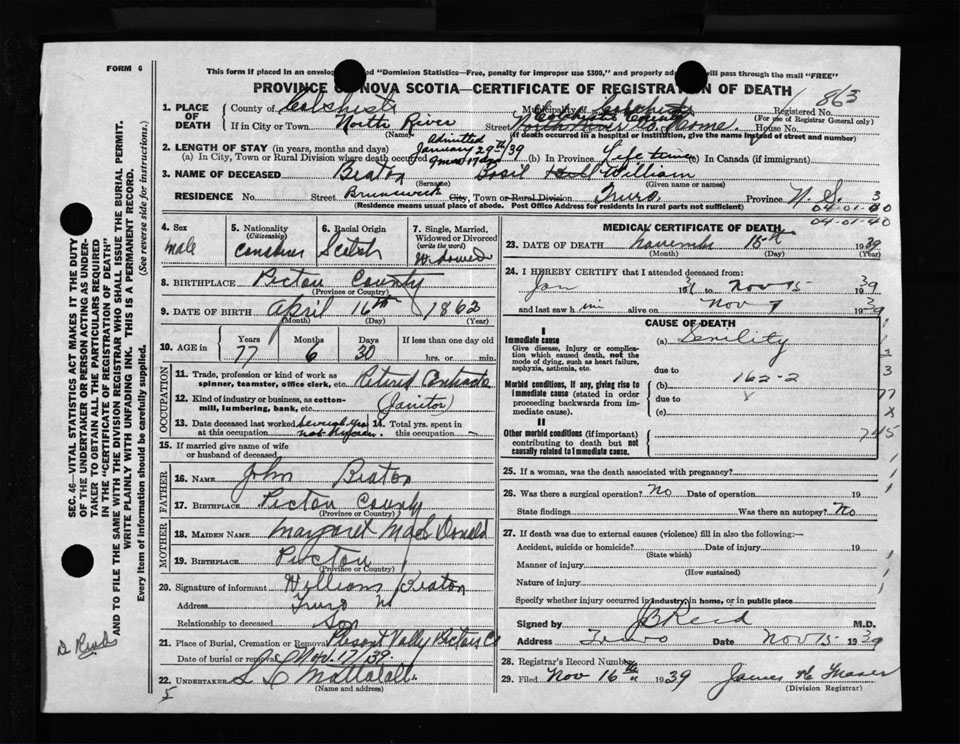 FORM 6
This form if placed in an envelop d "Dominion Statistics—Free, penalty for improper use $300," and properly ad will pass through the mail "FREE"
PROVINCE OF NOVA SCOTIA—CERTIFICATE OF REGISTRATION OF DEATH
1. PLACE OF DEATH
County of Colchester Municipality of Colchester Registered No. 863
(For use of Registrar General only)
If in City or Town North River Street Colchester County Home. House No.
(Name) (If death occurred in a hospital or institution, give the name instead of street and number)
2. LENGTH OF STAY (in years, months and days) Admitted January 29th/39
(a) In City, Town or Rural Division where death occurred 9 mos 17 days (b) In Province Life time (c) In Canada (if immigrant)
3. NAME OF DECEASED Beaton Basil William
(Surname) (Given name or names)
RESIDENCE No. Street Brunswick City, Town or Rural Division Truro Province N. S. 3
(Residence means usual place of abode. Post Office Address for residents in rural parts not sufficient) 04-01-40
04-01-40
4. Sex male
5. Nationality (Citizenship) Canadian
6. Racial Origin Scotch
7. Single, Married, Widowed or Divorced (write the word) Widowed
8. BIRTHPLACE Pictou County
(Province or Country)
9. DATE OF BIRTH April 16th 1862
(Month) (Day) (Year)
10. AGE in Years 77 Months 6 Days 30 If less than one day hrs. or min.
OCCUPATION
11. Trade, profession or kind of work as spinner, teamster, office clerk, etc. Retired
12. Kind of industry or business, as cotton-mill, lumbering, bank, etc. (Janitor)
13. Date deceased last worked at this occupation several yrs not known
14. Total yrs. spent in this occupation —
15. If married give name of wife or husband of deceased
FATHER
16. NAME John Beaton
17. BIRTHPLACE Pictou County
(Province or Country)
MOTHER
18. MAIDEN NAME Margaret MacDonald
19. BIRTHPLACE Pictou
(Province or Country)
20. Signature of informant William Beaton
Address Truro NS
Relationship to deceased Son
21. Place of Burial, Cremation or Removal Plesant Vally Pictou Co
Date of burial or removal Nov. 17/39
22. UNDERTAKER Mattatall
(Name and address)
MEDICAL CERTIFICATE OF DEATH
23. DATE OF DEATH November 15th 1939
(Month) (Day) (Year)
24. I HEREBY CERTIFY that I attended deceased from:
Jan 1939 to Nov 15 1939
and last saw him alive on Nov 7 1939
CAUSE OF DEATH
I
Immediate cause (a) Senility
Give disease, injury or complication which caused death, not the mode of dying, such as heart failure, asphyxia, asthenia, etc.
due to
Morbid conditions, if any, giving rise to immediate cause (stated in order proceeding backwards from immediate cause).
(b) 162-2
due to
(c)
II
Other morbid conditions (if important) contributing to death but not causally related to immediate cause.
3
77
X
745
25. If a woman, was the death associated with pregnancy?
26. Was there a surgical operation? No Date of operation 19
State findings Was there an autopsy? No
27. If death was due to external causes (violence) fill in also the following:—
Accident, suicide or homicide? Date of injury 19
(State which)
Manner of injury
(How sustained)
Nature of injury
Specify whether injury occurred in industry, in home, or in public place
Signed by J B Reid M.D.
Address Truro Date Nov 15 1939
28. Registrar's Record Number
29. Filed Nov 16th 1939 James H Fraser
(Division Registrar)
SEC. 46—VITAL STATISTICS ACT MAKES IT THE DUTY
OF THE UNDERTAKER OR PERSON ACTING AS UNDERTAKER TO OBTAIN ALL THE PARTICULARS REQUIRED
IN THE "CERTIFICATE OF REGISTRATION OF DEATH"
AND TO FILE THE SAME WITH THE DIVISION REGISTRAR WHO SHALL ISSUE THE BURIAL PERMIT.
WRITE PLAINLY WITH UNFADING INK. THIS IS A PERMANENT RECORD.
Every item of information should be carefully supplied. (See reverse side for instructions.)
Dr Reid